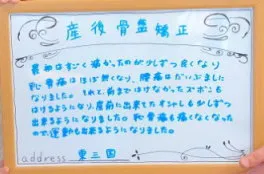 産後骨盤矯正
最初はすごく痛かったのが少しずつ良くなり
恥骨痛はほぼ無くなり、腰痛はだいぶましに
なりました。それと、前まではけなかったズボンも
はけるようになり、産前に出来てたオシャレも少しずつ
出来るようになりました。恥骨痛も痛くなくなった
ので、運動も出来るようになりました。
address 東三国